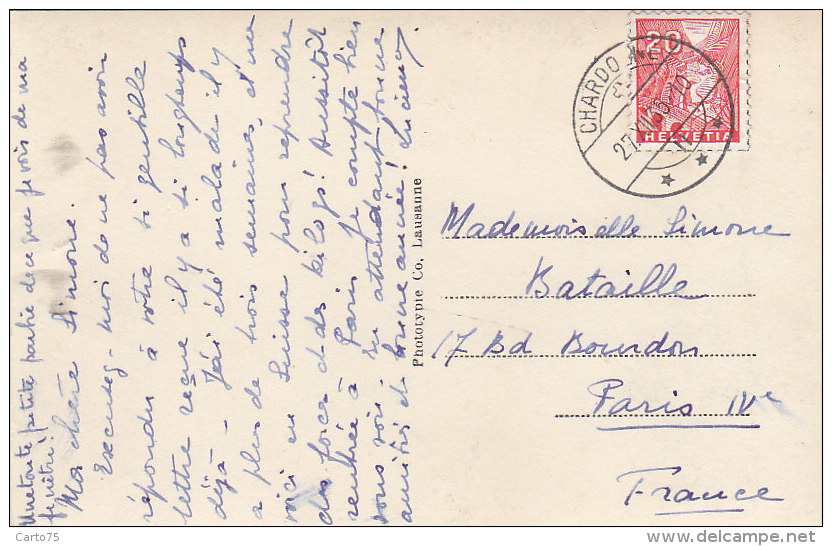 Une toute petite partie de ce que je vois de ma
fenêtre!
Ma chère Simone.
Excusez-moi de ne pas avoir
répondu à votre si gentille
lettre reçue il y a si longtemps
déjà - J'ai été malade il y
a plus de trois semaines, et me
voici en Suisse pour reprendre
des forces et des kilogs! Aussitôt
rentrée à Paris je compte bien
vous voir. En attendant bonne
amitiés et bonne année! Lucienne.
Phototypie Co, Lausanne
20
HELVETIA
CHARDONNE
Mademoiselle Simone
Bataille
17 Bd Bourdon
Paris IVe
France
Carto75
www.delcampe.net